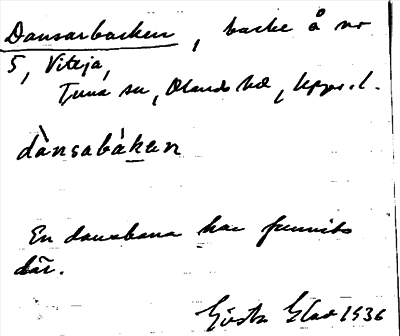 Dansarbacken, backe å nr
5, Viteja,
Tuna sn, Olands hd, Upps. l.
dànsabàken
En dansbana har funnits
där.
Gösta Elad 1936